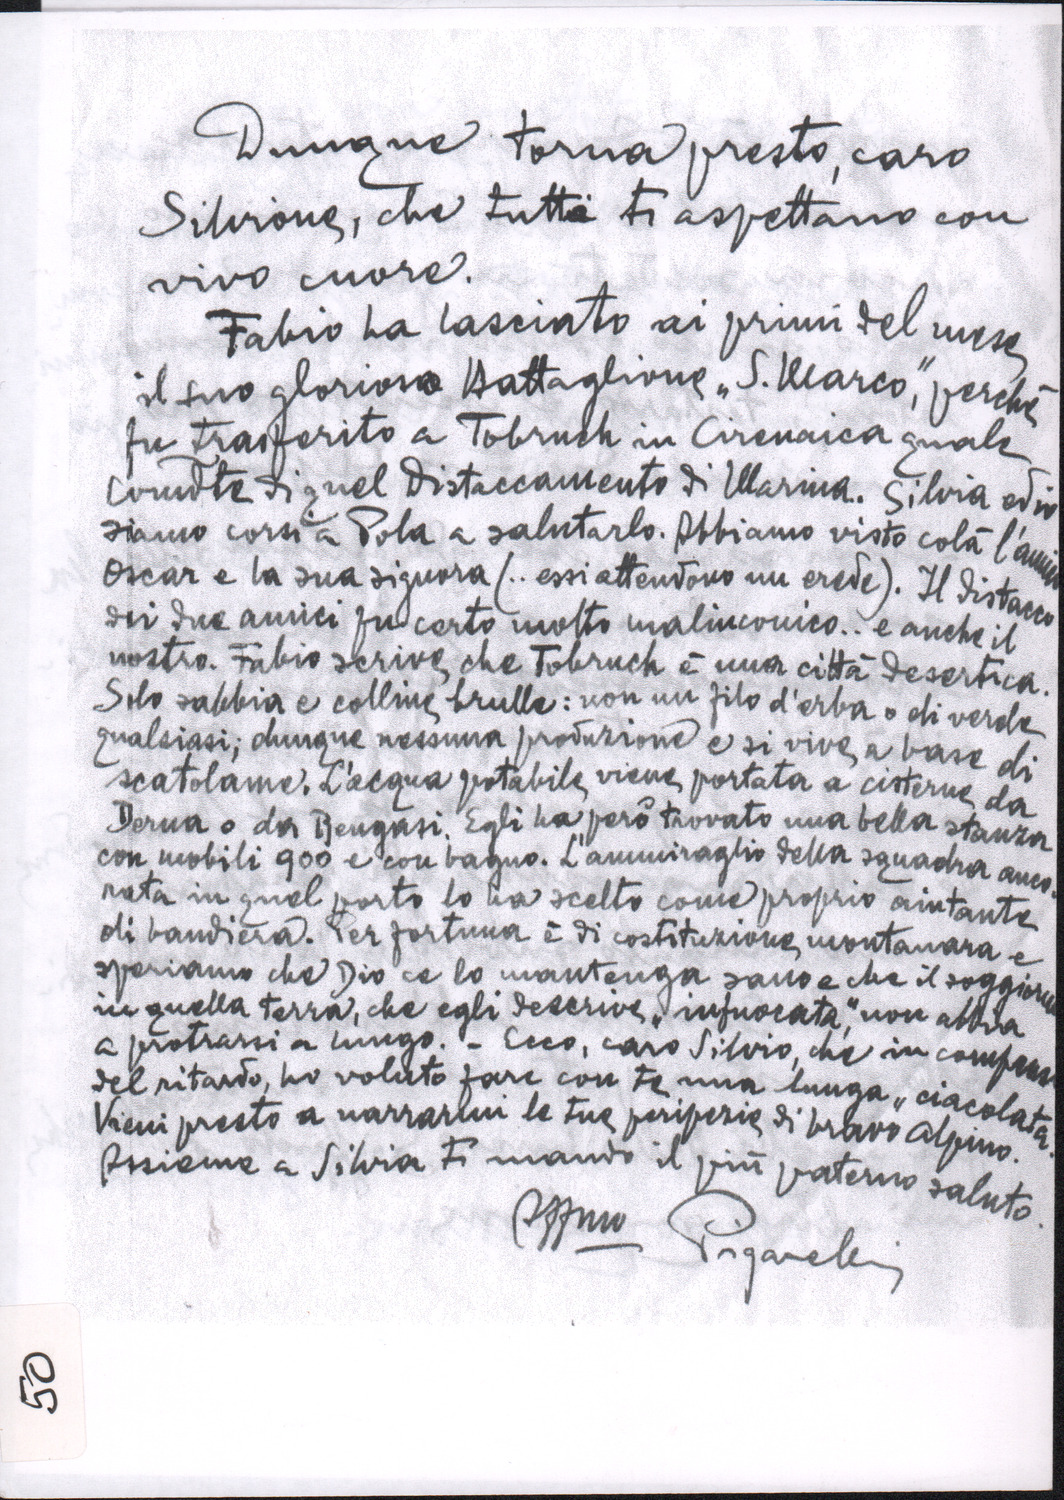 Dunque torna presto, caro
Silvione, che tutti ti aspettano con
vivo cuore.
Fabio ha lasciato ai primi del mese
il suo glorioso Battaglione „S. Marco", perchè
fu trasferito a Tobruch in Cirenaica quale
Com.te di quel Distaccamento di Marina. Silvia ed io
siamo corsi a Pola a salutarlo. Abbiamo visto colà l'amico
Oscar e la sua signora (.. essi attendono un erede). Il distacco
dei due amici fu certo molto malinconico.. e anche il
nostro. Fabio scrive che Tobruch è una città desertica.
Solo sabbia e colline brulle: non un filo d'erba o di verde
qualsiasi; dunque nessuna produzione e si vive a base di
scatolame. L'acqua potabile viene portata a cisterne da
Derna o da Bengasi. Egli ha però trovato una bella stanza
con mobili 900 e con bagno. L'ammiraglio della squadra anco-
rata in quel porto lo ha scelto come proprio aiutante
di bandiera. Per fortuna è di costituzione montanara e
speriamo che Dio ce lo mantenga sano e che il soggiorno
in quella terra, che egli descrive „infuocata", non abbia
a protrarsi a lungo. - Ecco, caro Silvio, che in compenso
del ritardo, ho voluto fare con te una lunga „ciacolata".
Vieni presto a narrarmi le tue peripezie di bravo Alpino.
Assieme a Silvia ti mando il più paterno saluto.
Affmo Piganelli
50